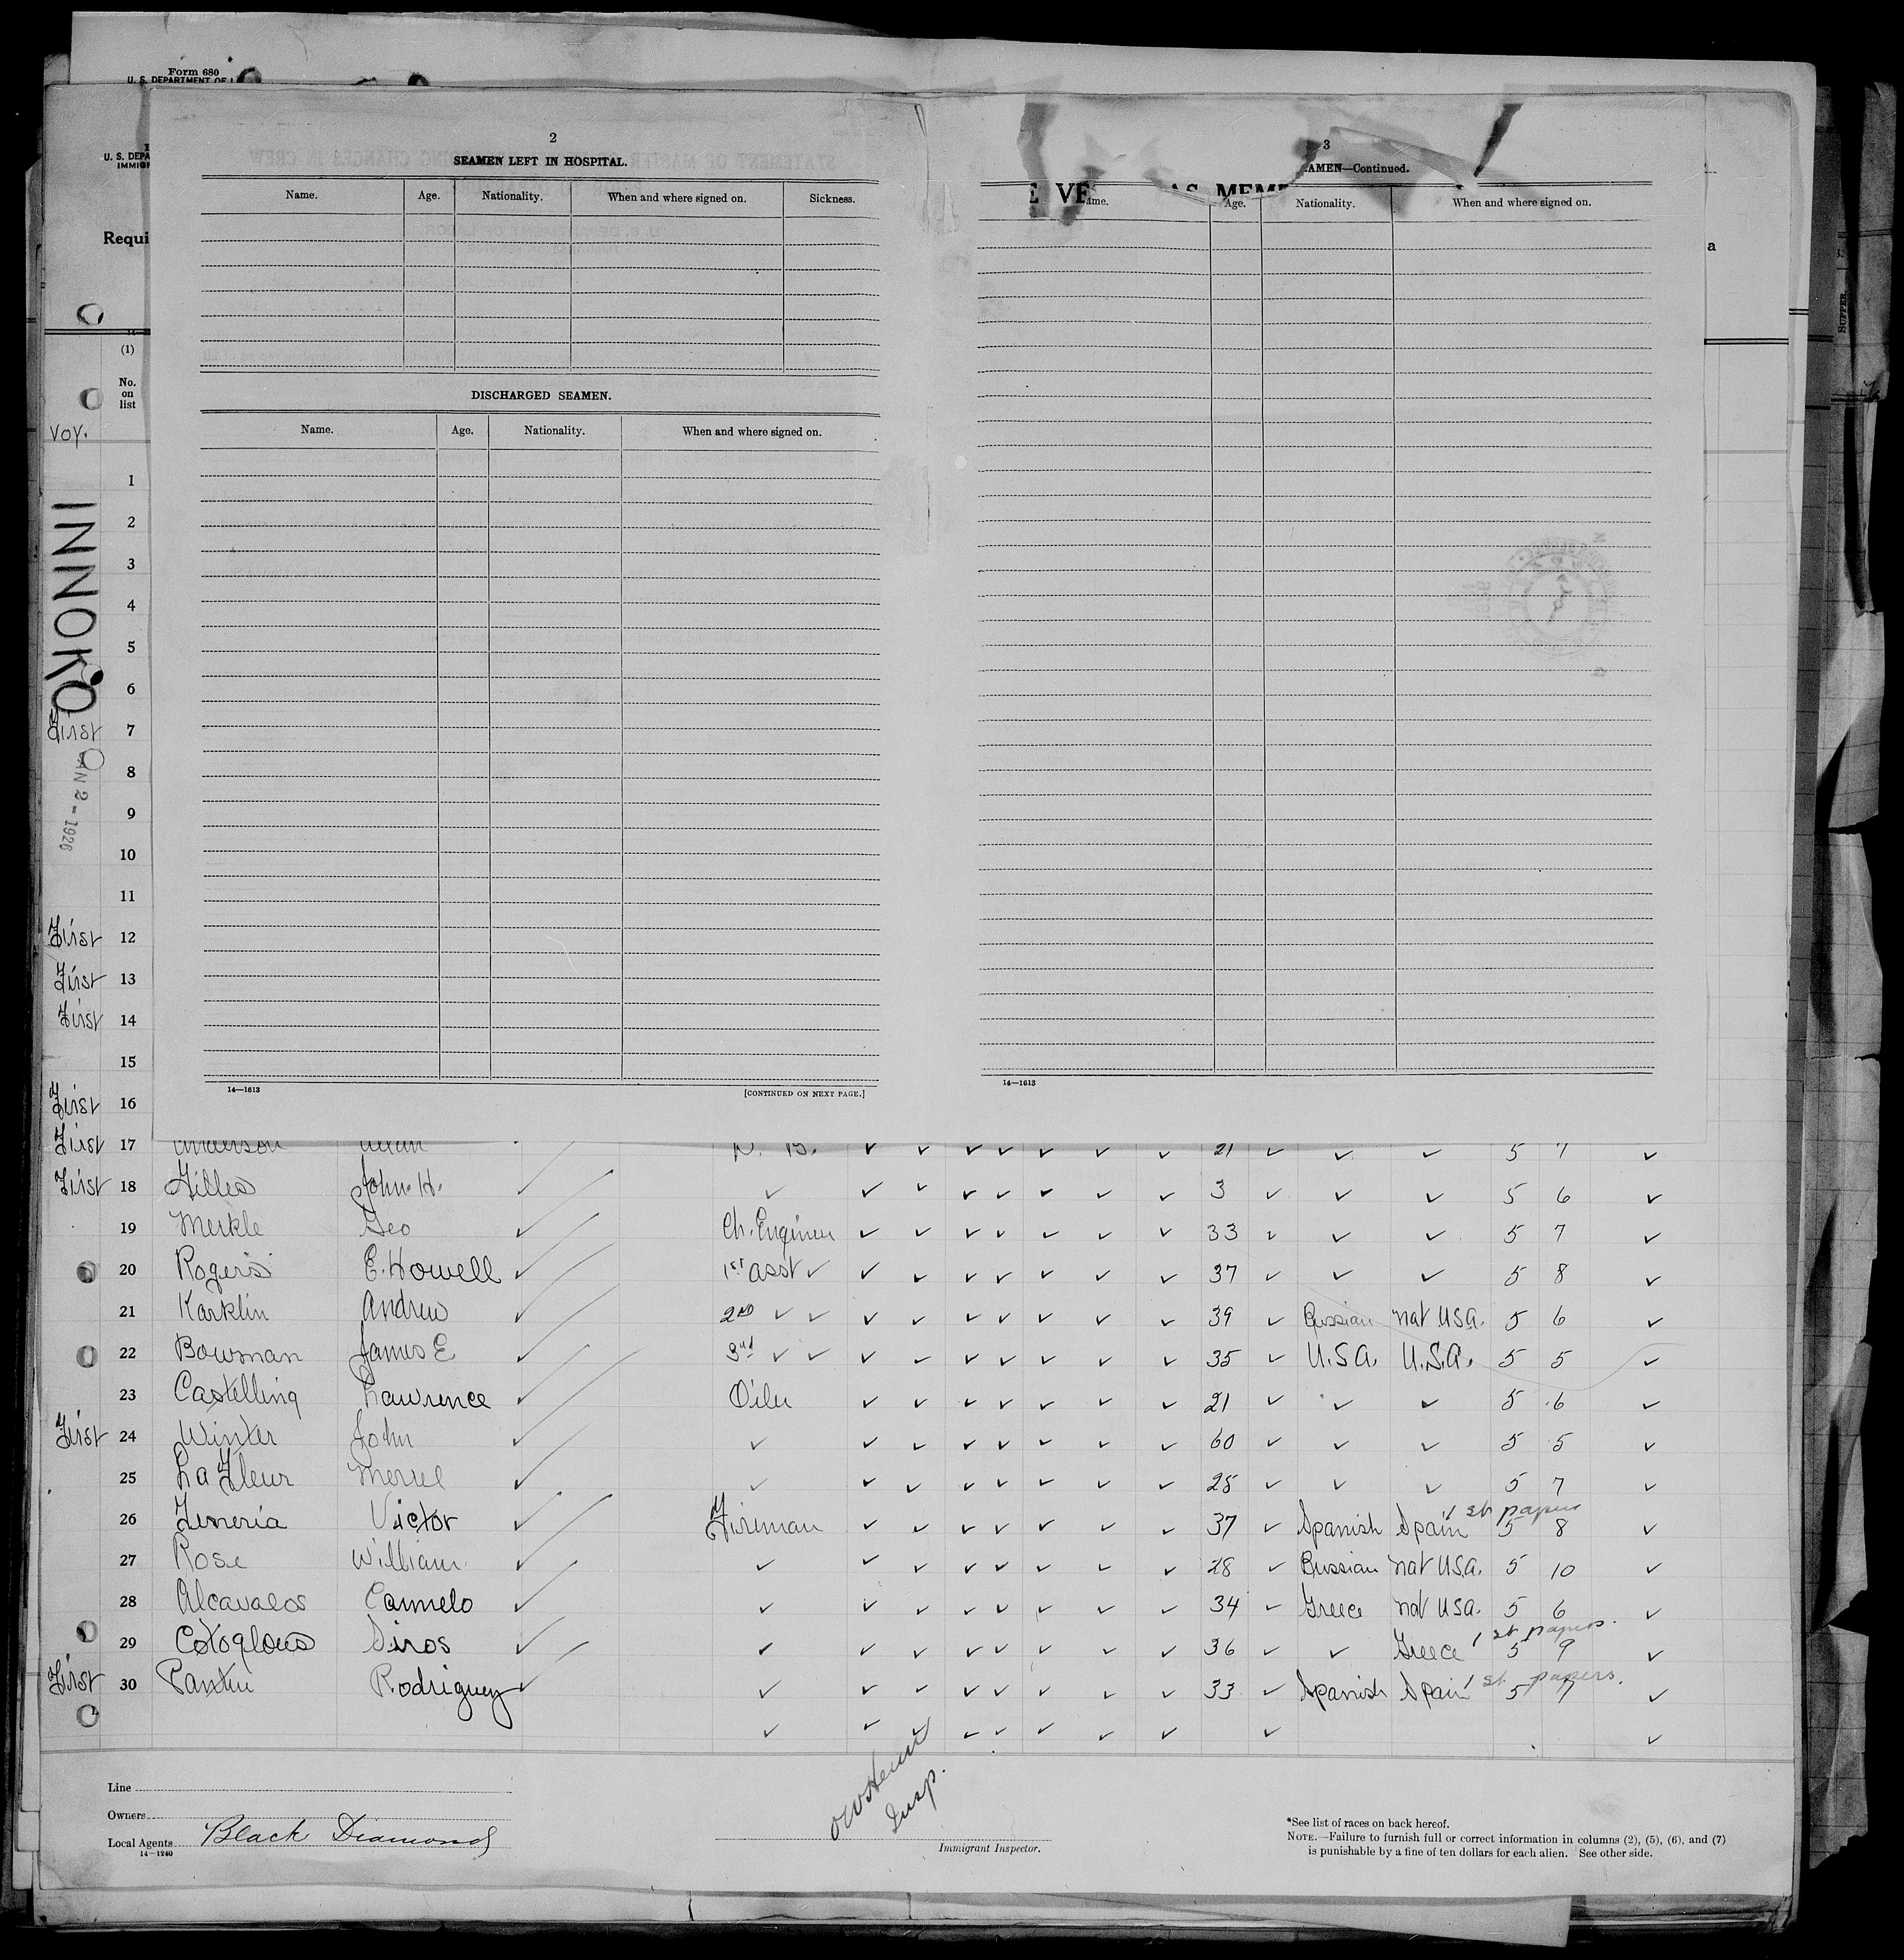 Form 680
U. S. DEPARTMENT OF
U. S. DEPA
IMMIG
Requi
(1)
No.
on
list
voy.
INNOKO
JAN 2 - 1926
2
SEAMEN LEFT IN HOSPITAL.
Name. Age. Nationality. When and where signed on. Sickness.
DISCHARGED SEAMEN.
Name. Age. Nationality. When and where signed on.
14—1613 [CONTINUED ON NEXT PAGE.]
3
AMEN—Continued.
E VE AS MEM
ame. Age. Nationality. When and where signed on.
14—1613
a
SUPPER.
1
2
3
4
5
6
First 7
8
9
10
11
First 12
First 13
First 14
15
First 16
First 17 Anderson ✓ ✓ ✓ ✓ ✓ ✓ ✓ ✓ 21 ✓ ✓ ✓ 5 7 ✓
First 18 Gilles John. H. ✓ ✓ ✓ ✓ ✓ ✓ ✓ ✓ ✓ 3 ✓ ✓ ✓ 5 6 ✓
19 Merkle Geo ✓ Ch. Engineer ✓ ✓ ✓ ✓ ✓ ✓ ✓ 33 ✓ ✓ ✓ 5 7 ✓
20 Rogers E. Howell ✓ 1st asst ✓ ✓ ✓ ✓ ✓ ✓ ✓ ✓ 37 ✓ ✓ ✓ 5 8 ✓
21 Karklin Andrew ✓ 2nd ✓ ✓ ✓ ✓ ✓ ✓ ✓ ✓ ✓ 39 ✓ Russian nat USA. 5 6 ✓
22 Bowman James E ✓ 3rd ✓ ✓ ✓ ✓ ✓ ✓ ✓ ✓ ✓ 35 ✓ U.S.A. U.S.A. 5 5 ✓
23 Castelling Lawrence ✓ Oiler ✓ ✓ ✓ ✓ ✓ ✓ ✓ 21 ✓ ✓ ✓ 5 6 ✓
First 24 Winter John ✓ ✓ ✓ ✓ ✓ ✓ ✓ ✓ ✓ 60 ✓ ✓ ✓ 5 5 ✓
25 La Fleur ✓ ✓ ✓ ✓ ✓ ✓ ✓ ✓ ✓ 28 ✓ ✓ ✓ 5 7 ✓
26 Victor ✓ Fireman ✓ ✓ ✓ ✓ ✓ ✓ ✓ 37 ✓ Spanish Spain 1 st papers 5 8 ✓
27 Rose William ✓ ✓ ✓ ✓ ✓ ✓ ✓ ✓ ✓ 28 ✓ Russian nat USA. 5 10 ✓
28 Alcavalos Carmelo ✓ ✓ ✓ ✓ ✓ ✓ ✓ ✓ ✓ 34 ✓ Greece nat USA. 5 6 ✓
29 Siros ✓ ✓ ✓ ✓ ✓ ✓ ✓ ✓ ✓ 36 ✓ ✓ Greece 1 st papers. 5 9 ✓
First 30 Rodriguez ✓ ✓ ✓ ✓ ✓ ✓ ✓ ✓ ✓ 33 ✓ Spanish Spain 1 st papers. 5 7 ✓
✓ ✓ ✓ ✓ ✓ ✓ ✓ ✓ ✓ ✓
Line
Owners
Local Agents Black Diamond
14—1240
Insp.
Immigrant Inspector.
*See list of races on back hereof.
NOTE.—Failure to furnish full or correct information in columns (2), (5), (6), and (7)
is punishable by a fine of ten dollars for each alien. See other side.